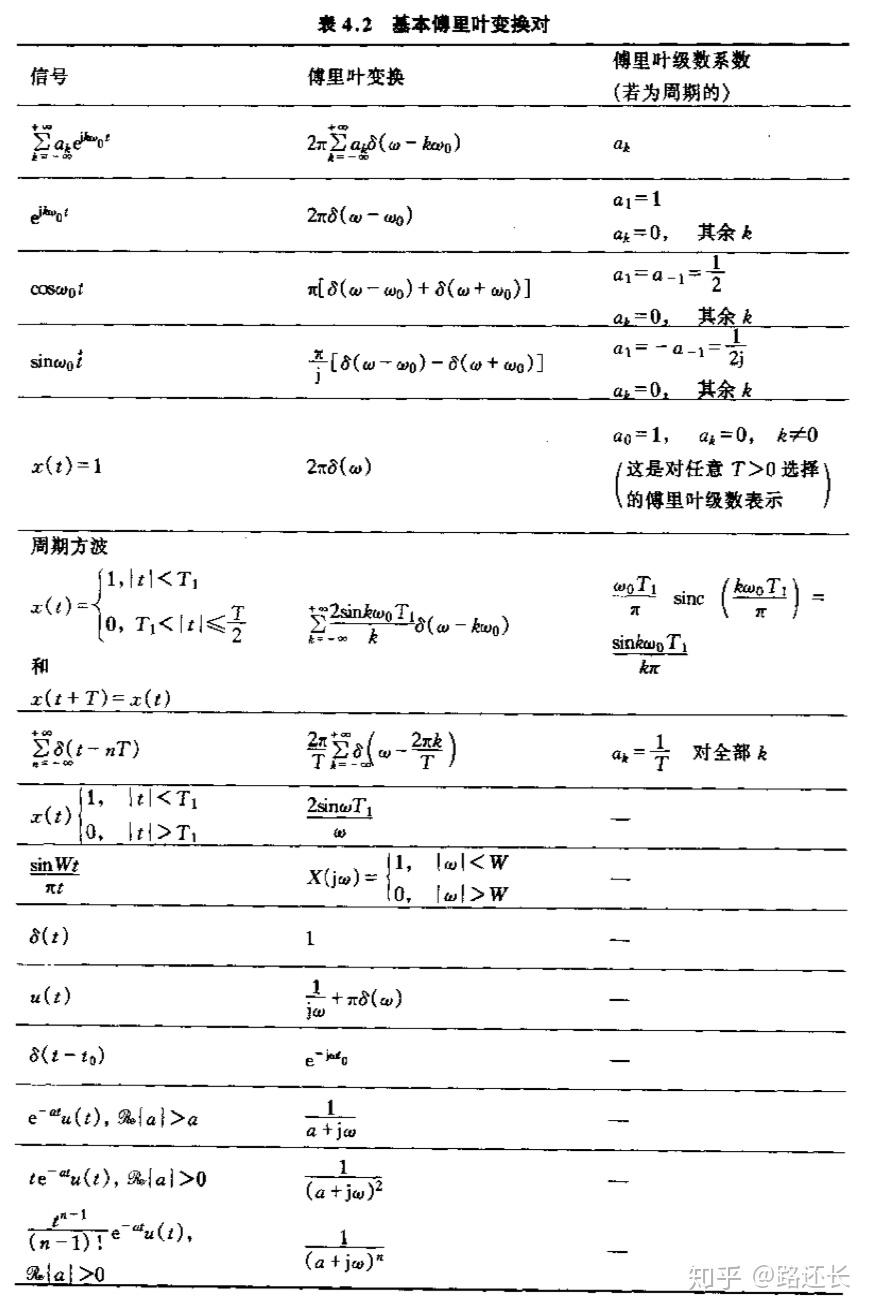 表 4.2 基本傅里叶变换对
信号 傅里叶变换 傅里叶级数系数（若为周期的）
$\sum_{k=-\infty}^{+\infty} a_k e^{jk\omega_0 t}$ $2\pi\sum_{k=-\infty}^{+\infty} a_k\delta(\omega-k\omega_0)$ $a_k$
$e^{jk\omega_0 t}$ $2\pi\delta(\omega-\omega_0)$ $a_1=1$
$a_k=0$, 其余 k
$\cos\omega_0 t$ $\pi[\delta(\omega-\omega_0)+\delta(\omega+\omega_0)]$ $a_1=a_{-1}=\frac{1}{2}$
$a_k=0$, 其余 k
$\sin\omega_0 t$ $\frac{\pi}{j}[\delta(\omega-\omega_0)-\delta(\omega+\omega_0)]$ $a_1=-a_{-1}=\frac{1}{2j}$
$a_k=0$, 其余 k
$x(t)=1$ $2\pi\delta(\omega)$ $a_0=1$, $a_k=0$, $k\neq 0$
(这是对任意 T>0 选择
的傅里叶级数表示)
周期方波
$x(t)=\begin{cases}1, |t|<T_1\\0, T_1<|t|\leq\frac{T}{2}\end{cases}$ $\sum_{k=-\infty}^{+\infty}\frac{2\sin k\omega_0 T_1}{k}\delta(\omega-k\omega_0)$ $\frac{\omega_0 T_1}{\pi}$ sinc $\left(\frac{k\omega_0 T_1}{\pi}\right)=$
$\frac{\sin k\omega_0 T_1}{k\pi}$
和
$x(t+T)=x(t)$
$\sum_{n=-\infty}^{+\infty}\delta(t-nT)$ $\frac{2\pi}{T}\sum_{k=-\infty}^{+\infty}\delta\left(\omega-\frac{2\pi k}{T}\right)$ $a_k=\frac{1}{T}$ 对全部 k
$x(t)\begin{cases}1, |t|<T_1\\0, |t|>T_1\end{cases}$ $\frac{2\sin\omega T_1}{\omega}$ —
$\frac{\sin Wt}{\pi t}$ $X(j\omega)=\begin{cases}1, |\omega|<W\\0, |\omega|>W\end{cases}$ —
$\delta(t)$ 1 —
$u(t)$ $\frac{1}{j\omega}+\pi\delta(\omega)$ —
$\delta(t-t_0)$ $e^{-j\omega t_0}$ —
$e^{-at}u(t)$, $\mathcal{Re}\{a\}>a$ $\frac{1}{a+j\omega}$ —
$te^{-at}u(t)$, $\mathcal{Re}\{a\}>0$ $\frac{1}{(a+j\omega)^2}$ —
$\frac{t^{n-1}}{(n-1)!}e^{-at}u(t)$, $\frac{1}{(a+j\omega)^n}$ —
$\mathcal{Re}\{a\}>0$
知乎 @路还长